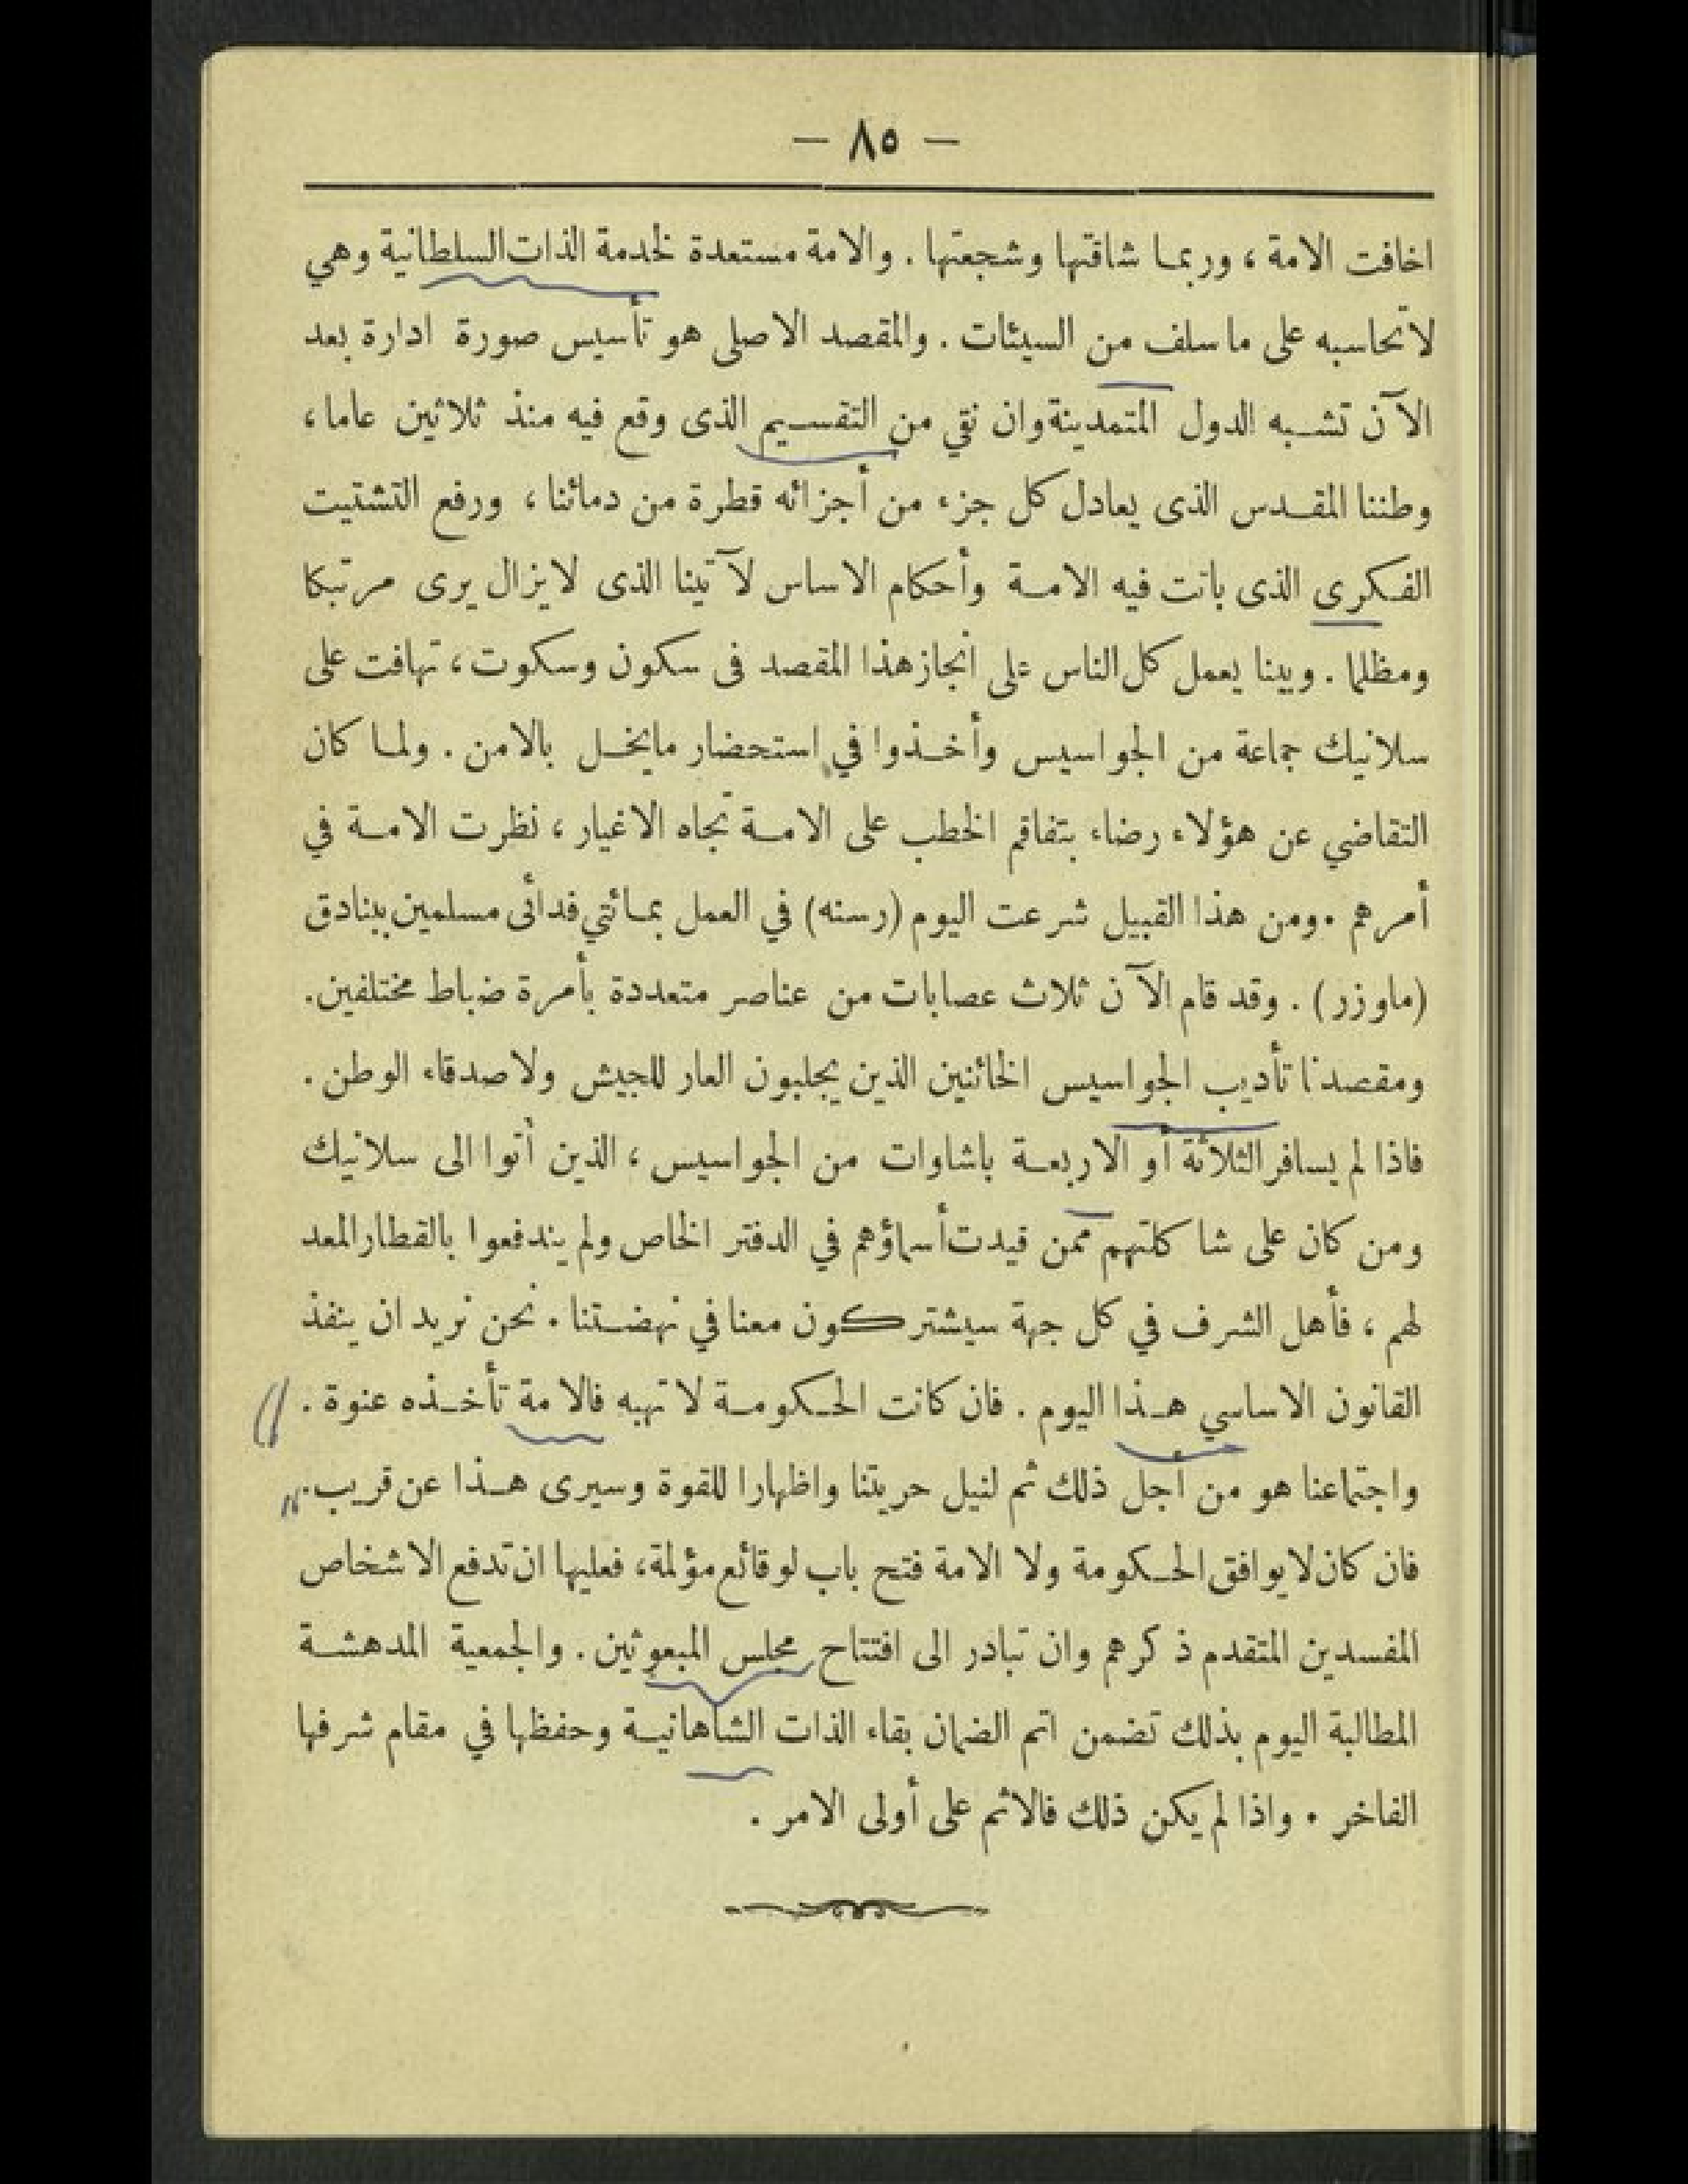 — ٨٥ —
اخافت الامة ، وربما شاقتها وشجعتها . والامة مستعدة لخدمة الذات السلطانية وهي
لا تحاسبه على ما سلف من السيئات . والمقصد الاصلى هو تأسيس صورة ادارة بعد
الآن تشبه الدول المتمدينة وان نقي من التقسيم الذى وقع فيه منذ ثلاثين عاما ،
وطننا المقدس الذى يعادل كل جزء من أجزائه قطرة من دمائنا ، ورفع التشتيت
الفكرى الذى باتت فيه الامة وأحكام الاساس لآتينا الذى لايزال يرى مرتبكا
ومظلما . وبينا يعمل كل الناس على انجاز هذا المقصد فى سكون وسكوت ، تهافت على
سلانيك جماعة من الجواسيس وأخذوا في استحضار مايخل بالامن . ولما كان
التقاضي عن هؤلاء رضاء بتفاقم الخطب على الامة تجاه الاغيار ، نظرت الامة في
أمرهم . ومن هذا القبيل شرعت اليوم (رسنه) في العمل بمائتي فدائى مسلمين ببنادق
(ماوزر) . وقد قام الآن ثلاث عصابات من عناصر متعددة بأمرة ضباط مختلفين .
ومقصدنا تأديب الجواسيس الخائنين الذين يجلبون العار للجيش ولاصدقاء الوطن .
فاذا لم يسافر الثلاثة أو الاربعة باشاوات من الجواسيس ، الذين أتوا الى سلانيك
ومن كان على شاكلتهم ممن قيدت أسماؤهم في الدفتر الخاص ولم يندفعوا بالقطار المعد
لهم ، فأهل الشرف في كل جهة سيشتركون معنا في نهضتنا . نحن نريد ان ينفذ
القانون الاساسي هذا اليوم . فان كانت الحكومة لا تهبه فالامة تأخذه عنوة .
واجتماعنا هو من أجل ذلك ثم لنيل حريتنا واظهارا للقوة وسيرى هذا عن قريب .
فان كان لا يوافق الحكومة ولا الامة فتح باب لوقائع مؤلمة ، فعليها ان تدفع الاشخاص
المفسدين المتقدم ذكرهم وان تبادر الى افتتاح مجلس المبعوثين . والجمعية المدهشة
المطالبة اليوم بذلك تضمن اتم الضمان بقاء الذات الشاهانية وحفظها في مقام شرفها
الفاخر . واذا لم يكن ذلك فالاثم على أولى الامر .